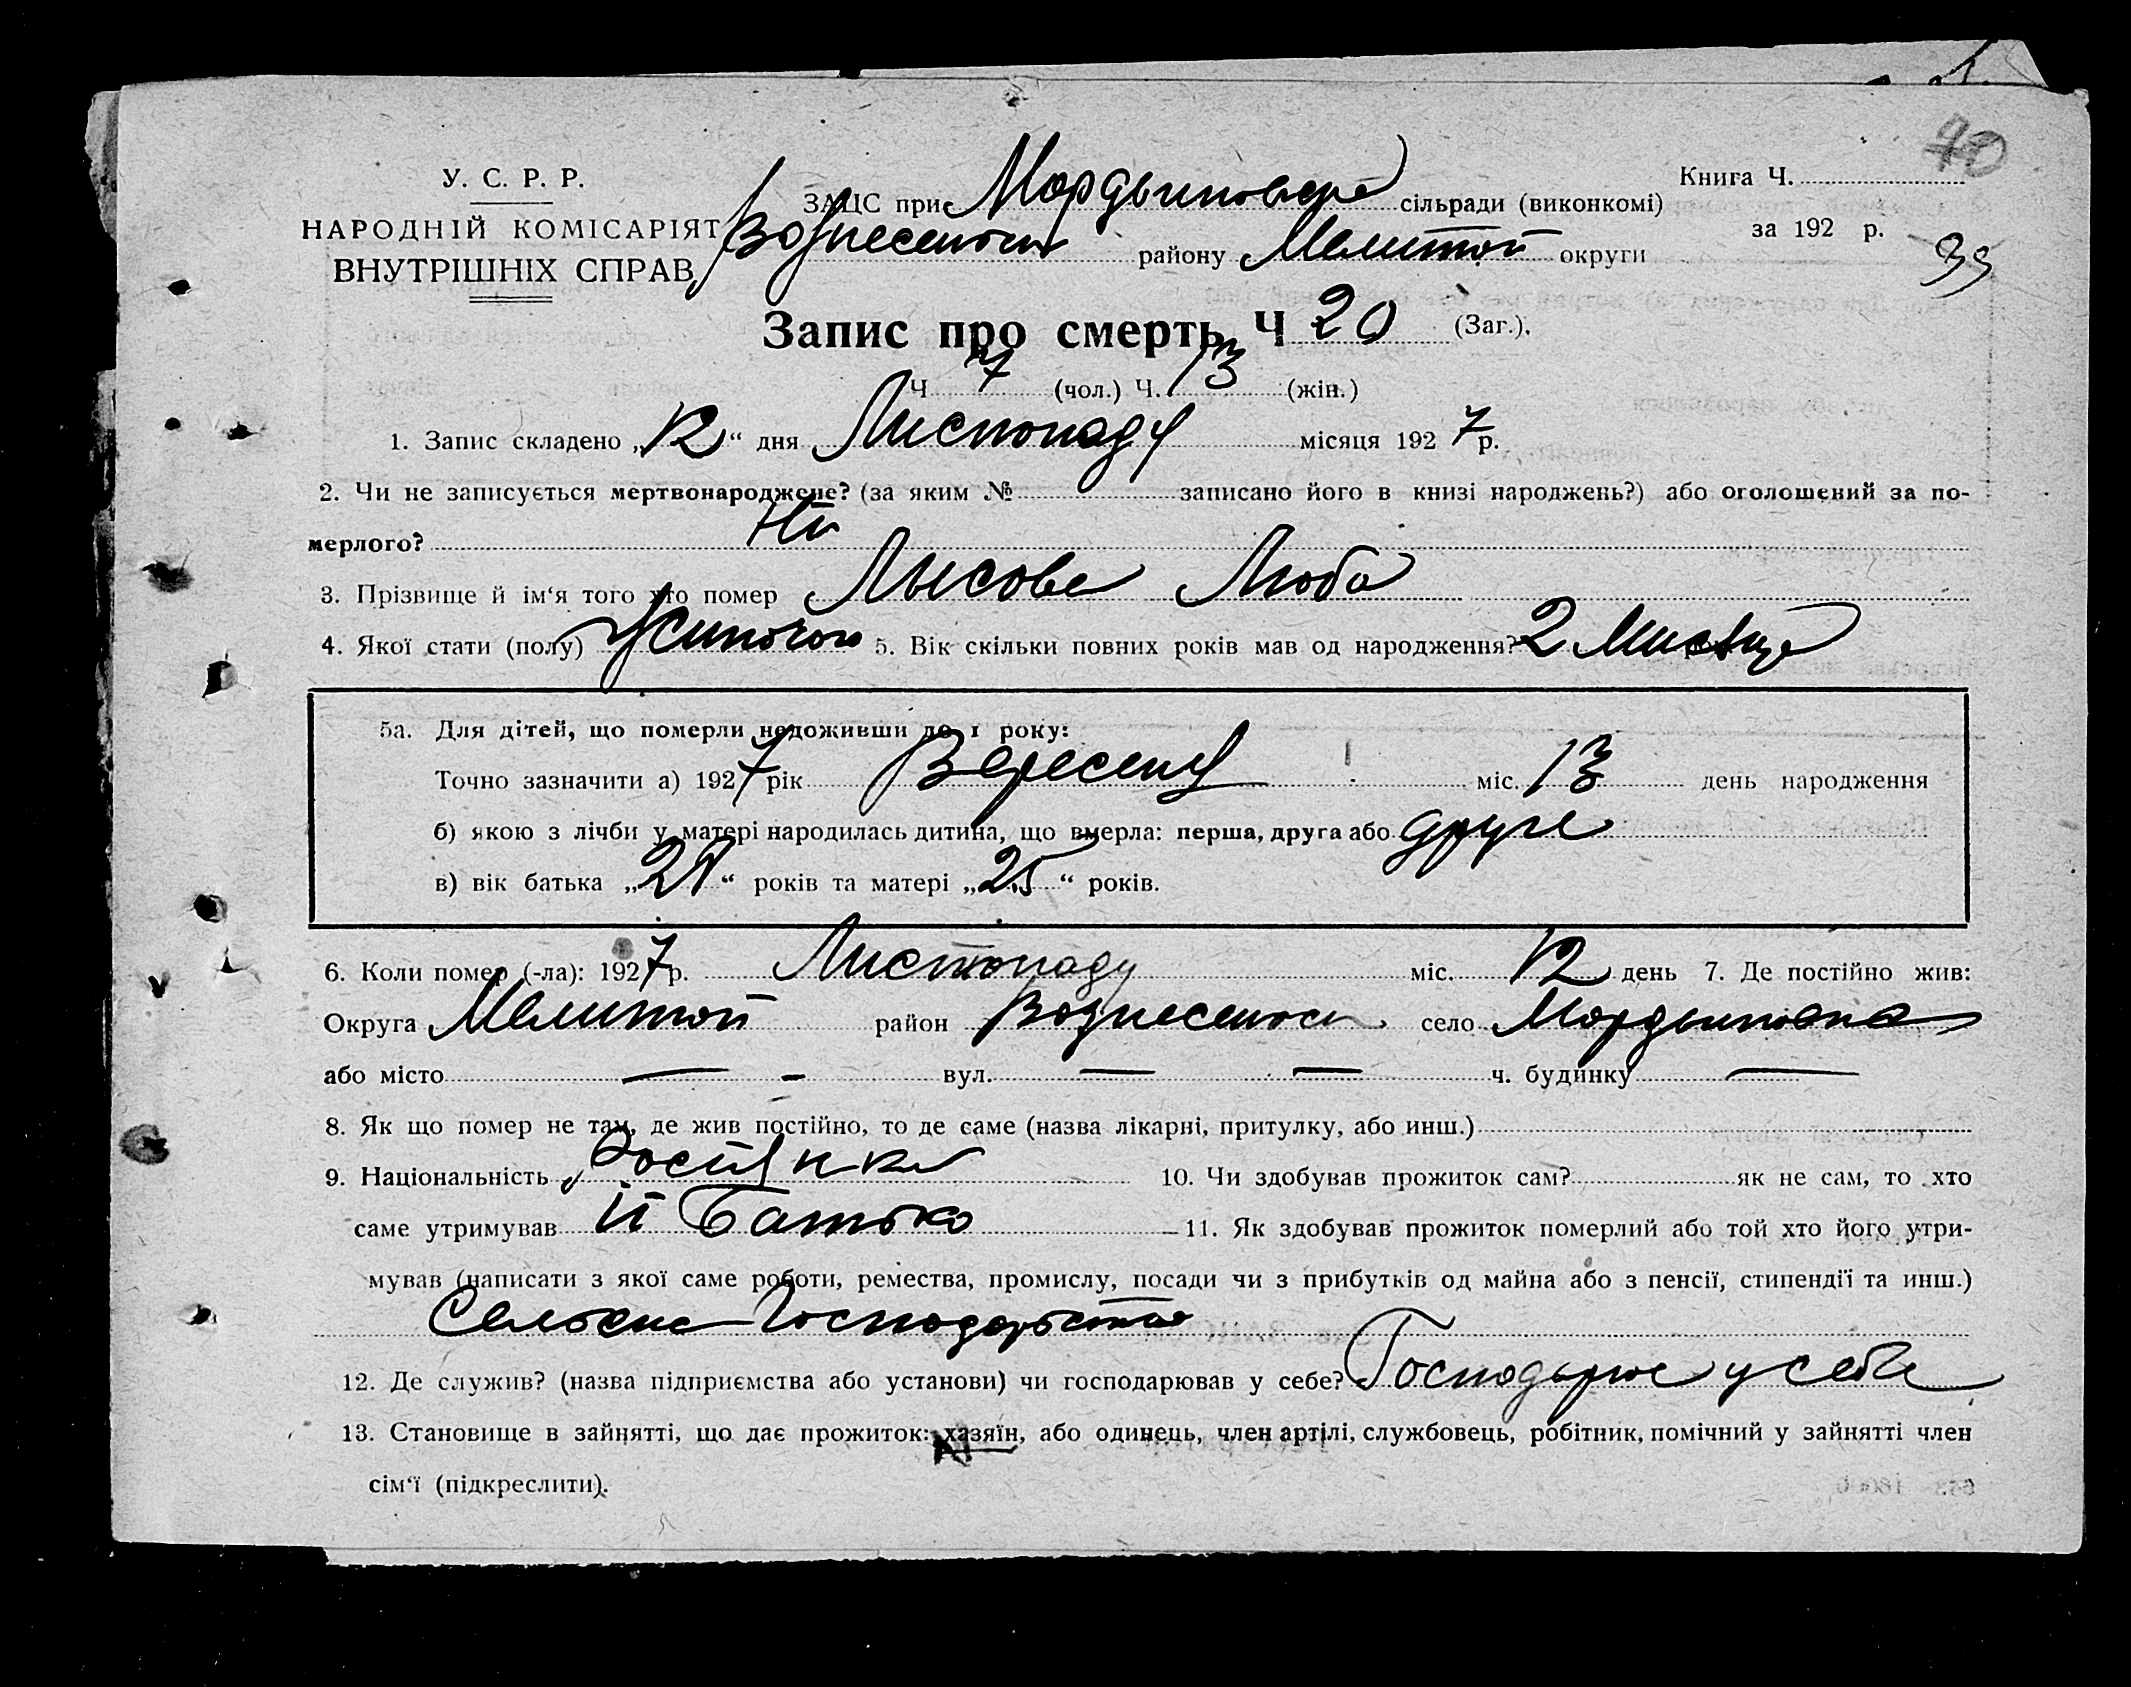 40
У. С. Р. Р.
НАРОДНІЙ КОМІСАРІЯТ
ВНУТРІШНІХ СПРАВ
ЗАЦС при Мордвиновск сільради (виконкомі)
Вознесенськ району Мелітоп округи
Книга Ч.
за 192 р.
39
Запис про смерть Ч 20 (Заг.),
Ч 7 (чол.) Ч. 13 (жін.)
1. Запис складено „12“ дня Листопаду місяця 1927 р.
2. Чи не записується мертвонароджене? (за яким № записано його в книзі народжень?) або оголошений за по-
мерлого? Ні
3. Прізвище й ім‘я того хто помер Лысова Люба
4. Якої стати (полу) Жиночого 5. Вік скільки повних років мав од народження? 2 Мисяця
5а. Для дітей, що померли недоживши до 1 року:
Точно зазначити а) 1927 рік Вересеня міс. 13 день народження
б) якою з лічби у матері народилась дитина, що вмерла: перша, друга або друга
в) вік батька „ “ років та матері „25“ років.
6. Коли помер (-ла): 1927 р. Листопаду міс. 12 день 7. Де постійно жив:
Округа Мелитоп район Вознесенськ село Мордвиновка
або місто — - вул. — — ч. будинку —
8. Як що помер не там, де жив постійно, то де саме (назва лікарні, притулку, або инш.)
9. Національність Росіянка 10. Чи здобував прожиток сам? як не сам, то хто
саме утримував Ії Батько 11. Як здобував прожиток померлий або той хто його утри-
мував (написати з якої саме роботи, ремества, промислу, посади чи з прибутків од майна або з пенсії, стипендії та инш.)
Сельске Господарьство
12. Де служив? (назва підприємства або установи) чи господарював у себе? Господарює у себе
13. Становище в зайнятті, що дає прожиток: хазяїн, або одинець, член артілі, службовець, робітник, помічний у зайнятті член
сім‘ї (підкреслити).